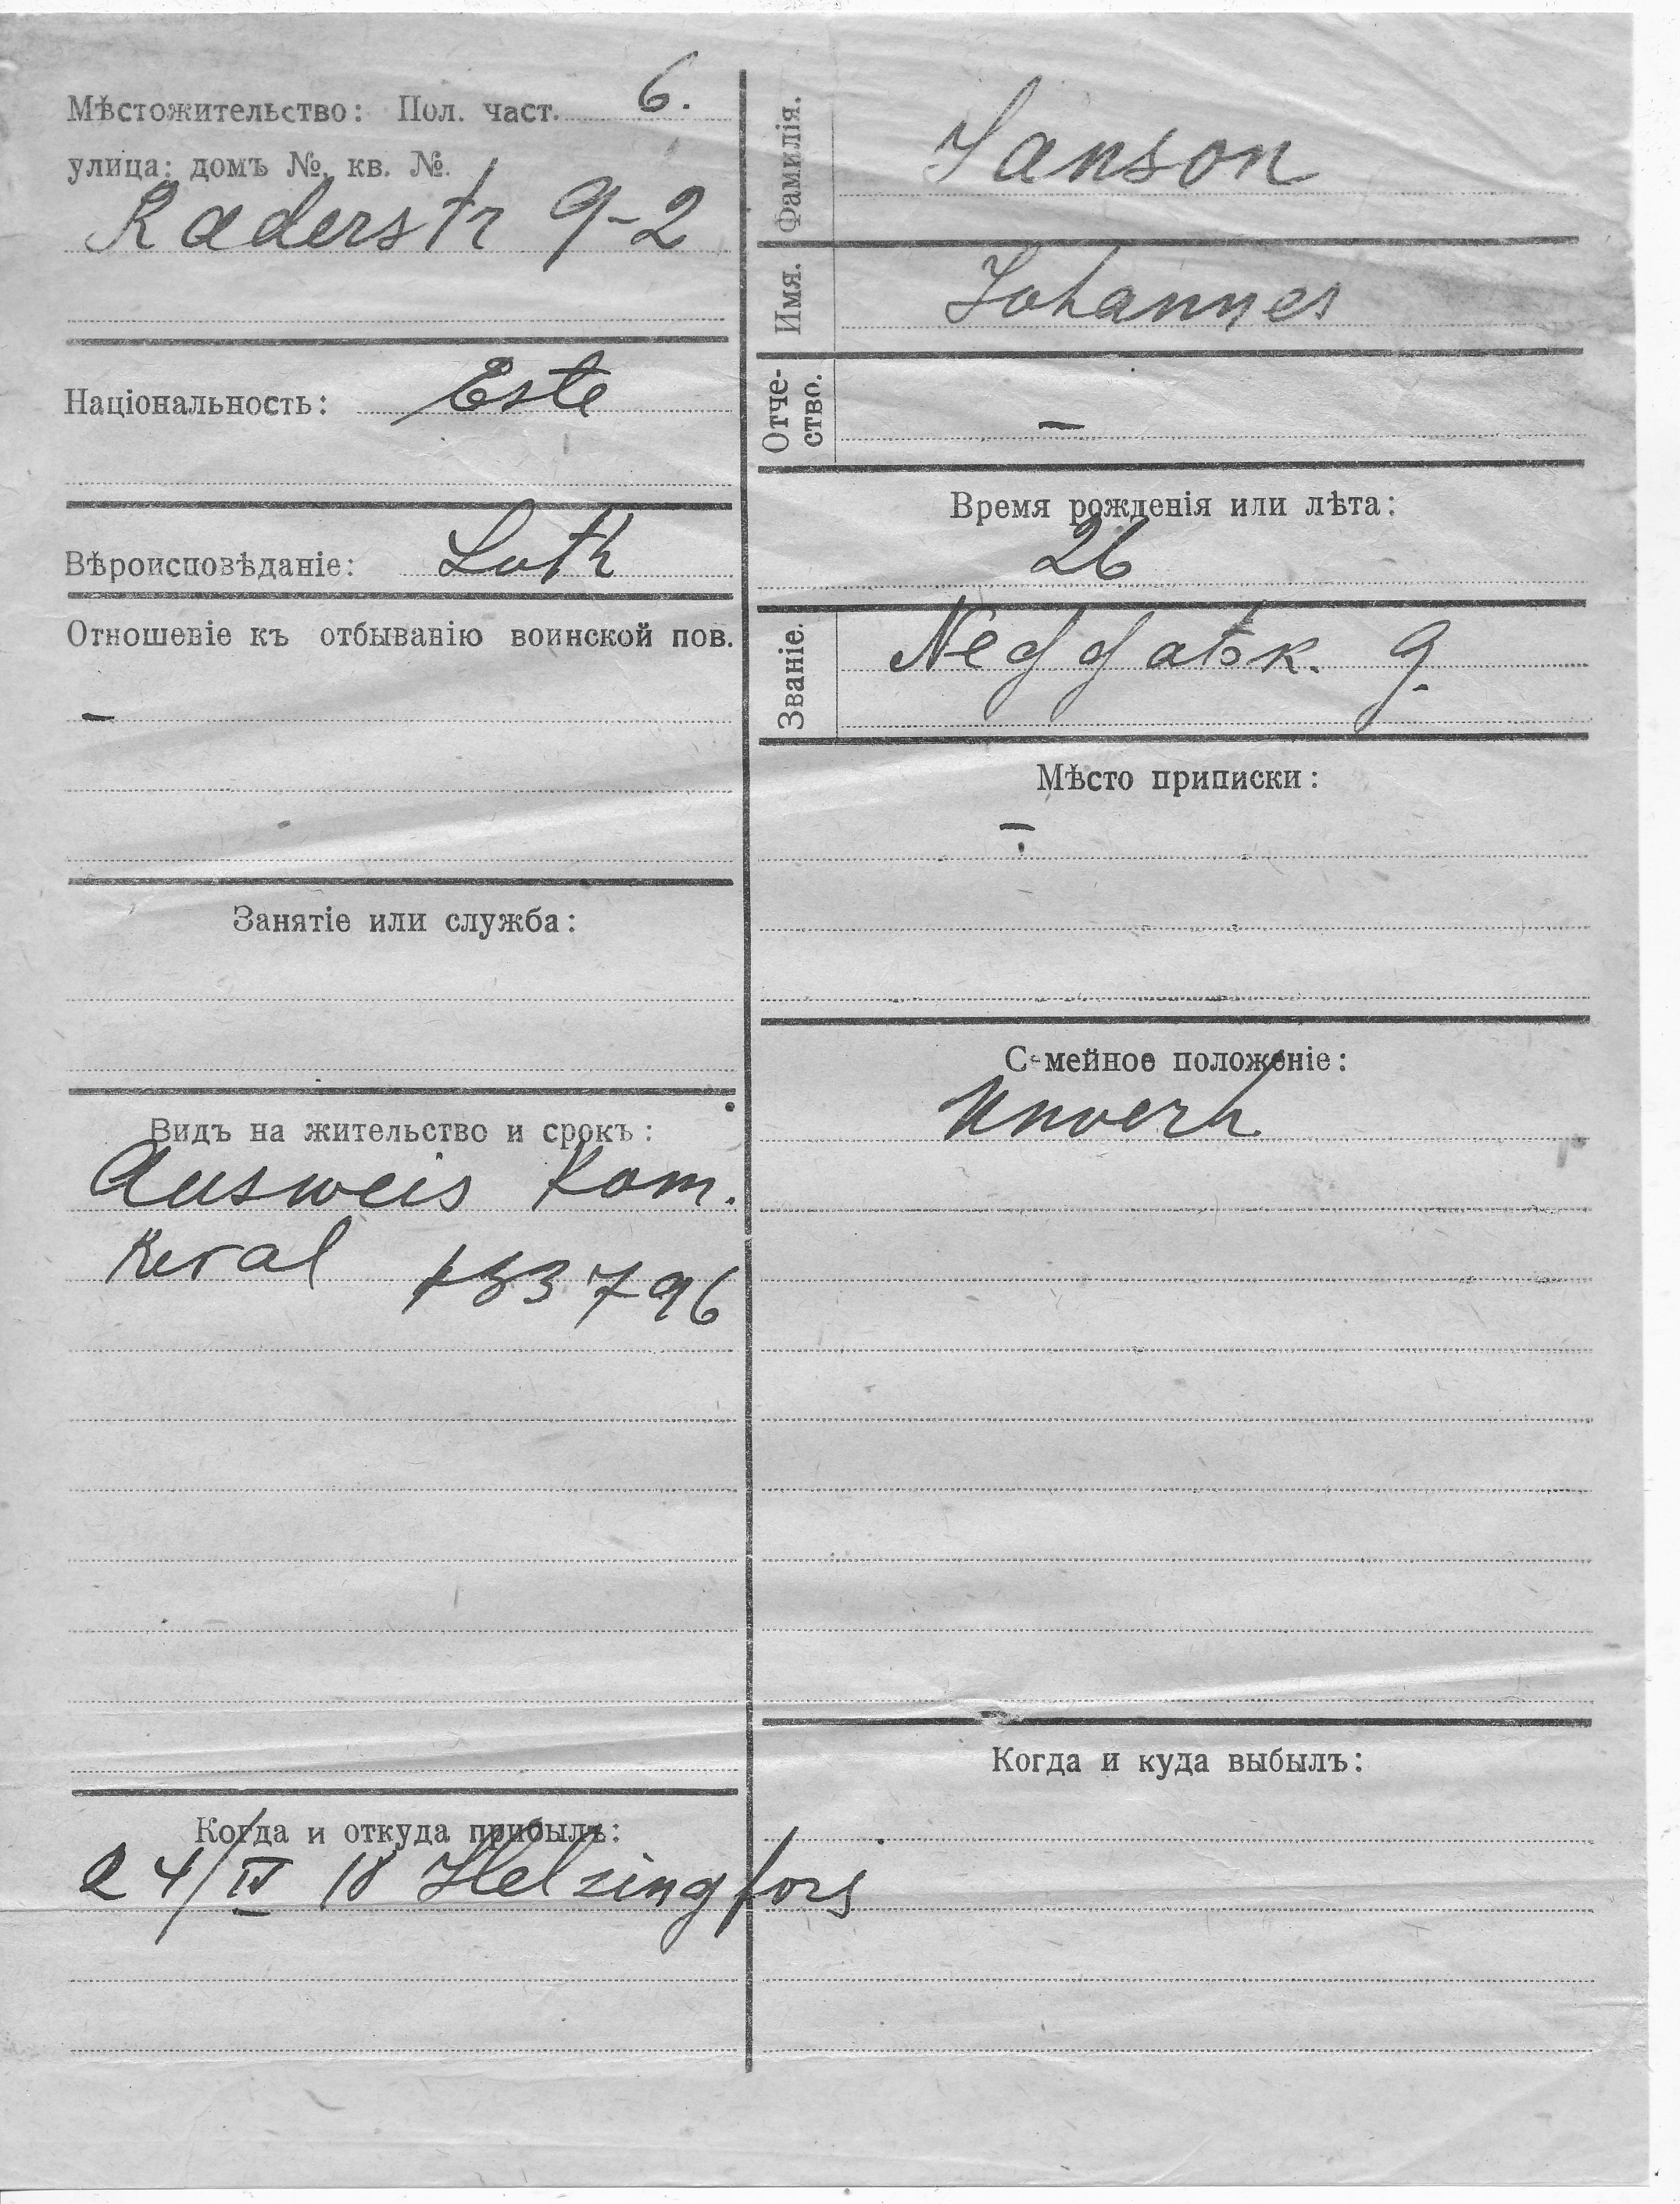 Мѣстожительство: Пол. част. 6.
улица: домъ №, кв. №.
Raderstr 9-2
Національность: Este
Вѣроисповѣданіе: Luth
Отношеніе къ отбыванію воинской пов.
–
Занятіе или служба:
Видъ на жительство и срокъ:
Ausweis Kom.
Reval 133796
Когда и откуда прибылъ:
24/IV 18 Helsingfors
Фамилія. Janson
Имя. Johannes
Отче-
ство. –
Время рожденія или лѣта:
26
Званіе.
Мѣсто приписки:
–
Семейное положеніе:
Unverh
Когда и куда выбылъ: